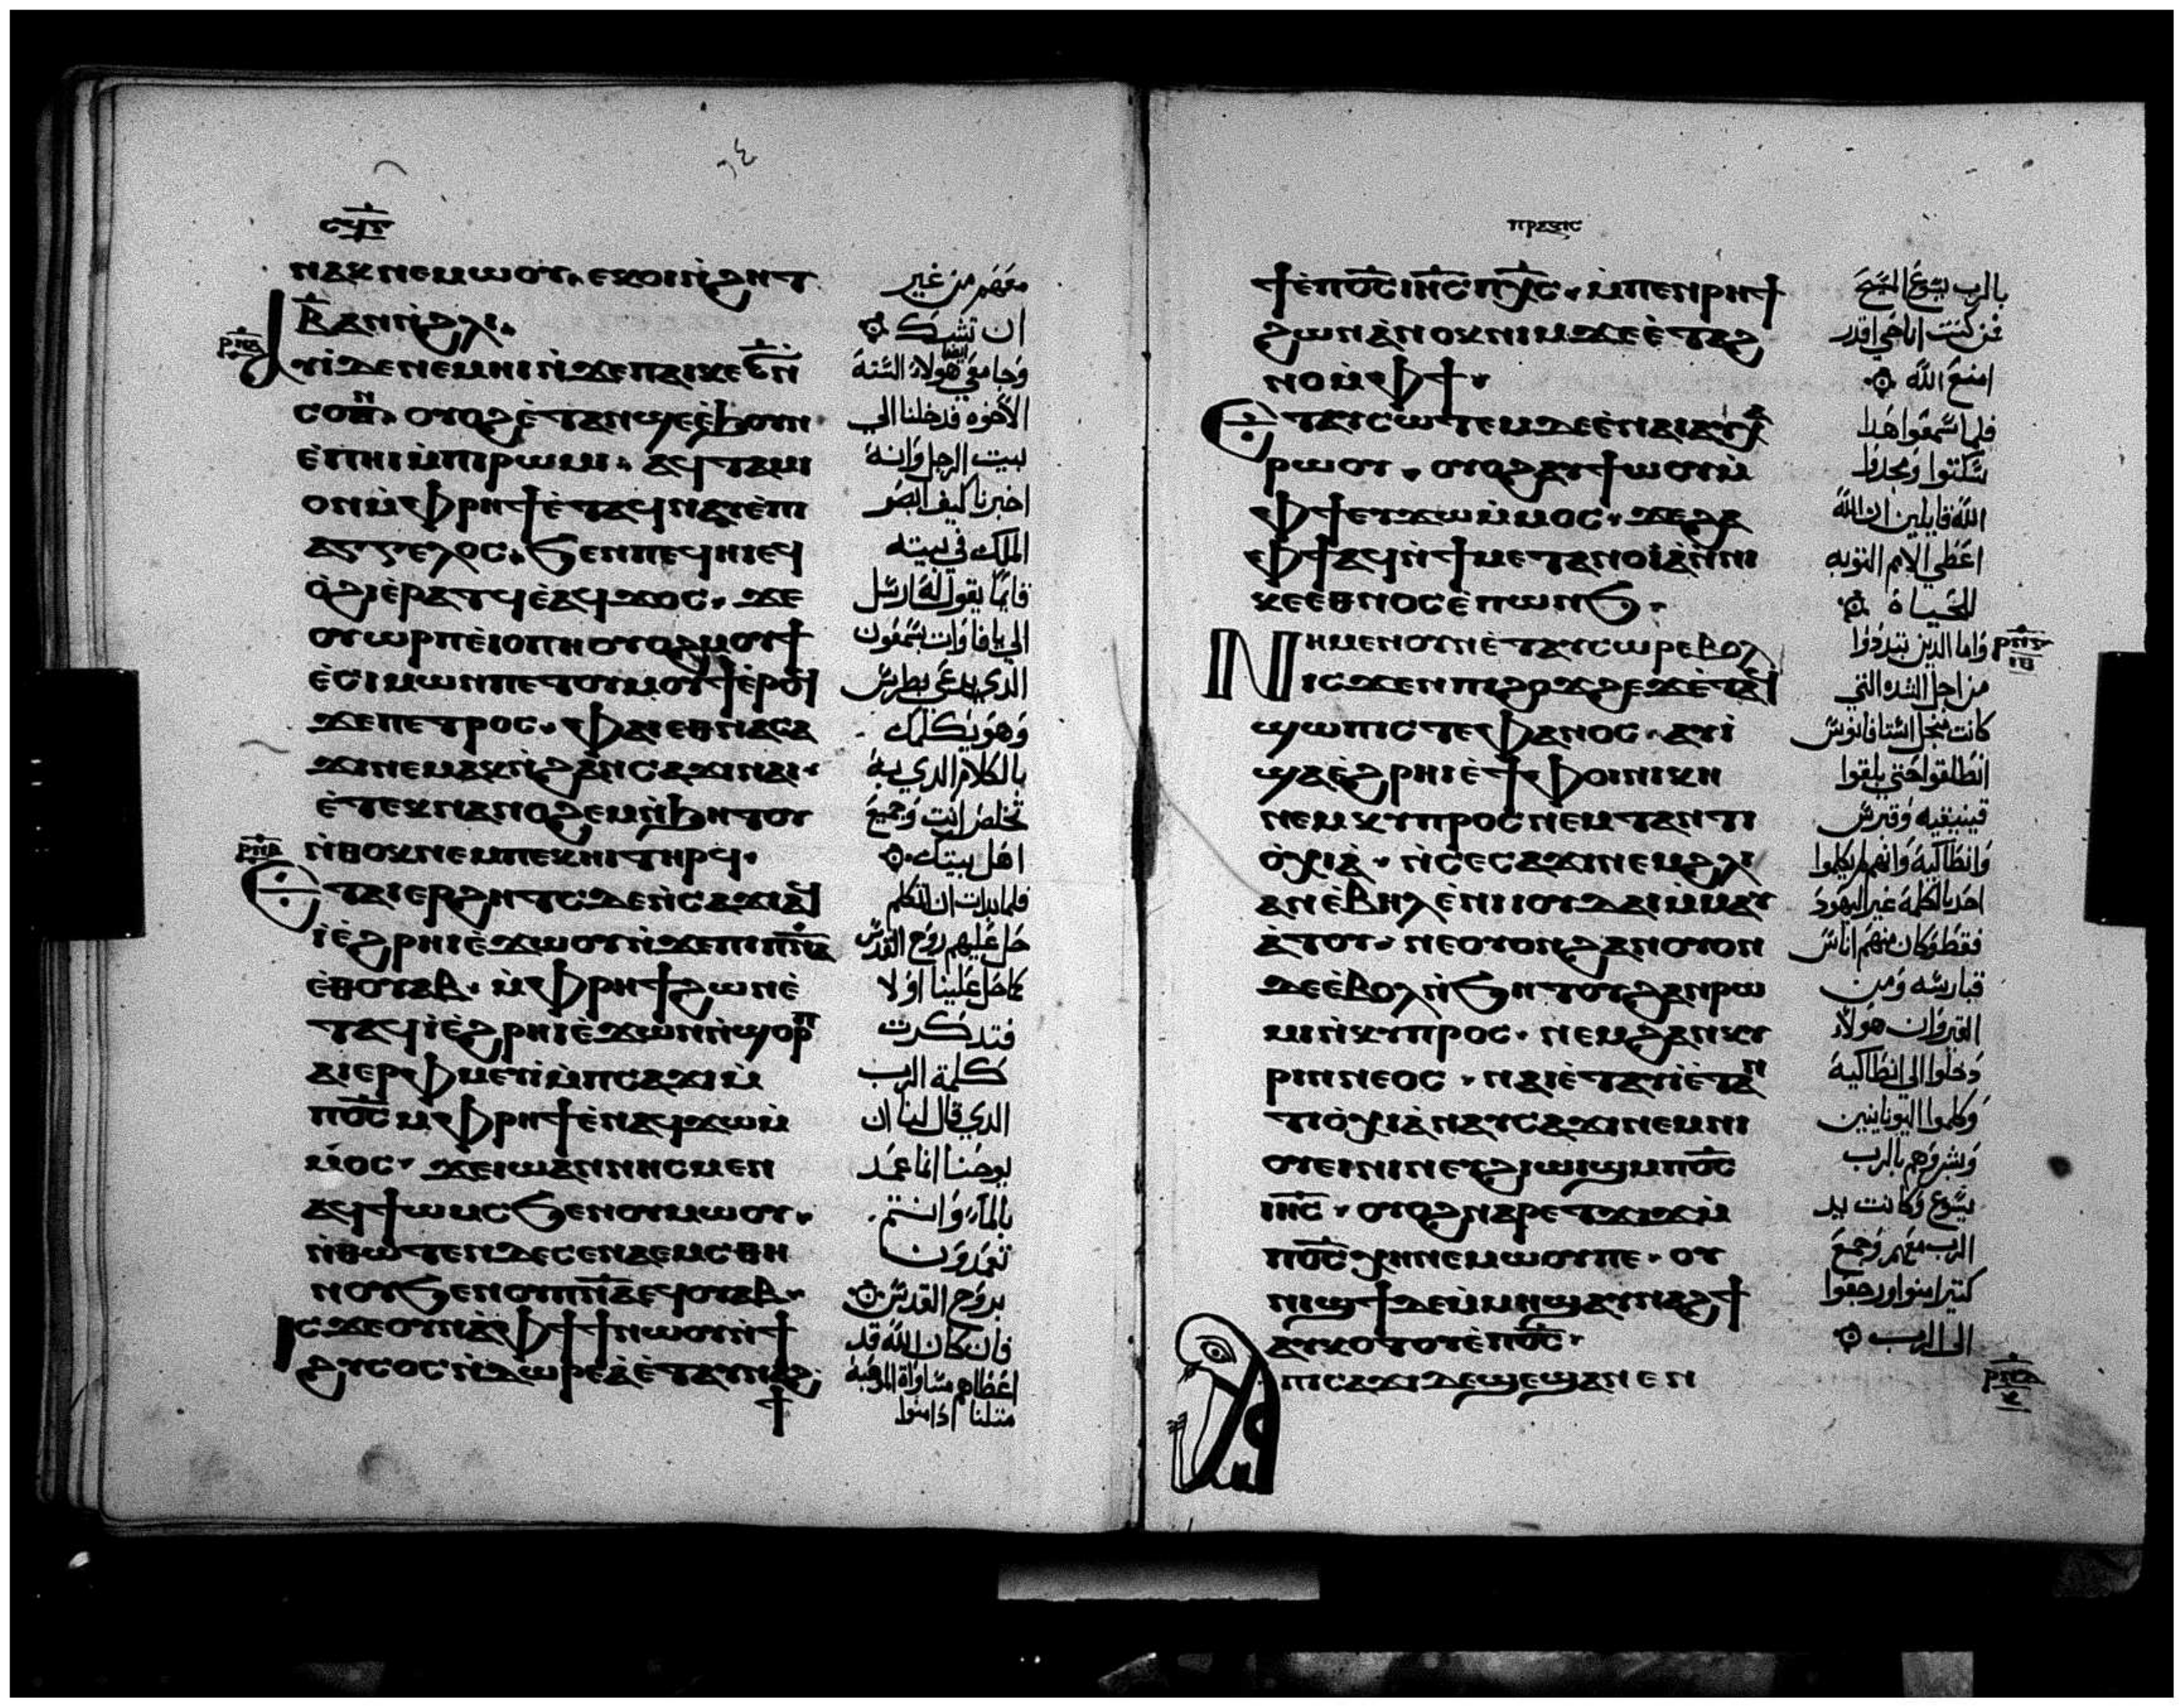 ⲛⲁⲕ ⲛⲉⲙⲱⲟⲩ· ⲉⲕⲟⲓ ⲛ̀ϩⲏⲧ
ⲃ̅ ⲁⲛ ⲛ̀ϩⲗⲓ·
ⲩⲓ̀ ⲇⲉ ⲛⲉⲙⲏⲓ ⲛ̀ϫⲉ ⲡⲁⲓⲕⲉ ⲋ̅ ⲛ
ⲥⲟⲛ· ⲟⲩⲟϩ ⲉ̀ⲧⲁⲛϣⲉ ⲉ̀ϧⲟⲩⲛ
ⲉ̀ⲡⲏⲓ ⲙ̀ⲡⲓⲣⲱⲙⲓ· ⲁϥⲧⲁⲙ
ⲟⲛ ⲙ̀ⲫⲣⲏϯ ⲉ̀ⲧⲁϥⲛⲁⲩ ⲉ̀ⲡⲓ
ⲁⲅⲅⲉⲗⲟⲥ· ϧⲉⲛ ⲡⲉϥⲏⲓ ⲉϥ
ⲟ̀ϩⲓ ⲉ̀ⲣⲁⲧϥ ⲉ̀ⲁϥϫⲟⲥ· ϫⲉ
ⲟⲩⲱⲣⲡ ⲉ̀ⲓⲟⲡⲏ ⲟⲩⲟϩ ⲙⲟⲩϯ
ⲉ̀ⲥⲓⲙⲱⲛ ⲡⲉⲧⲟⲩⲙⲟⲩϯ ⲉ̀ⲣⲟϥ
ϫⲉ ⲡⲉⲧⲣⲟⲥ· ⲫⲁⲓ ⲉⲑⲛⲁⲥⲁ
ϫⲓ ⲛⲉⲙⲁⲕ ⲛ̀ϩⲁⲛⲥⲁϫⲓ ⲛⲁⲓ·
ⲉ̀ⲧⲉⲕⲛⲁⲛⲟϩⲉⲙ ⲛ̀ϧⲏⲧⲟⲩ
ⲛ̀ⲑⲟⲕ ⲛⲉⲙ ⲡⲉⲕⲏⲓ ⲧⲏⲣϥ·
ⲉⲧⲁⲓⲉⲣϩⲏⲧⲥ ⲇⲉ ⲛ̀ⲥⲁϫⲓ ⲁϥ
ⲓ̀ ⲉ̀ϩⲣⲏⲓ ⲉ̀ϫⲱⲟⲩ ⲛ̀ϫⲉ ⲡⲓⲡ̅ⲛ̅ⲁ̅
ⲉ̀ⲑⲟⲩⲁⲃ· ⲙ̀ⲫⲣⲏϯ ϩⲱⲛ ⲉ̀
ⲧⲁϥⲓ̀ ⲉ̀ϩⲣⲏⲓ ⲉ̀ϫⲱⲛ ⲛ̀ϣⲟⲣⲡ
ⲁⲓⲉⲣⲫⲙⲉⲩⲓ̀ ⲙ̀ⲡⲥⲁϫⲓ ⲙ̀
ⲡⲟ̅ⲥ̅ ⲙ̀ⲫⲣⲏϯ ⲉ̀ⲛⲁϥϫⲱ ⲙ̀
ⲙⲟⲥ· ϫⲉ ⲓⲱⲁⲛⲛⲏⲥ ⲙⲉⲛ
ⲁϥϯⲱⲙⲥ ϧⲉⲛ ⲟⲩⲙⲱⲟⲩ·
ⲛ̀ⲑⲱⲧⲉⲛ ⲇⲉ ⲥⲉⲛⲁⲉⲙⲥ ⲑⲏ
ⲛⲟⲩ ϧⲉⲛ ⲟⲩⲡ̅ⲛ̅ⲁ̅ ⲉϥⲟⲩⲁⲃ·
ⲓⲥϫⲉ ⲟⲩⲛ ⲁ̀ ⲫϯ ϯ ⲛⲱⲟⲩ ⲛ̀ϯ
ϩⲩⲥⲟⲥ ⲛ̀ⲇⲱⲣⲉⲁ̀ ⲉ̀ⲧⲁⲩⲛⲁϩ
ϯ
معهم من غير
ان تشك
وجا معي ايضا هولاء الستة
الاخوه فدخلنا الي
بيت الرجل وانه
اخبرنا كيف ابصر
الملاك في بيته
قايما يقول له ارسل
الي يافا وات بشمعون
الذي يدعي بطرس
وهو يكلمك
بالكلام الدي به
تخلص انت وجميع
اهل بيتك
فلما بدات ان اتكلم
حل عليهم روح القدس
كما حل علينا اولا
فتدكرت
كلمة الرب
الدي قال لنا ان
يوحنا انما عمد
بالماء وانتم
تعمدون
بروح القدس
فان كان الله قد
اعطاهم مساواة الموهبة
مثلنا اذ امنوا
ⲡⲣⲁⲝⲓⲥ
ϯ ⲉ̀ⲡⲟ̅ⲥ̅ ⲓⲏ̅ⲥ̅ ⲡⲭ̅ⲥ̅· ⲙ̀ⲡⲉⲛⲣⲏϯ
ϩⲱⲛ ⲁ̀ⲛⲟⲕ ⲛⲓⲙ ϫⲉ ⲉ̀ⲧⲁϩ
ⲛⲟ ⲙ̀ⲫϯ·
ⲉⲧⲁⲩⲥⲱⲧⲉⲙ ⲇⲉ ⲉ̀ⲛⲁⲓ ⲁⲩⲭⲁ
ⲣⲱⲟⲩ· ⲟⲩⲟϩ ⲁⲩϯⲱⲟⲩ ⲙ̀
ⲫϯ ⲉⲩϫⲱ ⲙ̀ⲙⲟⲥ· ϫⲉ ϩⲁ
ⲣⲁ ⲫϯ ⲁϥϯ ⲙⲉⲧⲁⲛⲟⲓⲁ̀ ⲛ̀ⲛⲓ
ⲕⲉⲉⲑⲛⲟⲥ ⲉ̀ⲡⲱⲛϧ·
ⲛⲏ ⲙⲉⲛ ⲟⲩⲛ ⲉ̀ⲧⲁⲩⲥⲱⲣ ⲉⲃⲟⲗ
ⲓⲥϫⲉⲛ ⲡⲓϩⲟϫϩⲉϫ ⲉ̀ⲧⲁϥ
ϣⲱⲡⲓ ⲥⲧⲉⲫⲁⲛⲟⲥ· ⲁⲩⲓ̀
ϣⲁ ⲉ̀ϩⲣⲏⲓ ⲉ̀ϯⲫⲟⲓⲛⲓⲕⲏ
ⲛⲉⲙ ⲕⲩⲡⲣⲟⲥ ⲛⲉⲙ ⲧⲁⲛⲧⲓ
ⲟ̀ⲭⲓⲁ̀· ⲛ̀ⲥⲉⲥⲁϫⲓ ⲛⲉⲙ ϩⲗⲓ
ⲁⲛ ⲉ̀ⲃⲏⲗ ⲉ̀ⲛⲓⲓⲟⲩⲇⲁⲓ ⲙ̀ⲙⲁⲩ
ⲁ̀ⲧⲟⲩ· ⲛⲉ ⲟⲩⲟⲛ ϩⲁⲛⲟⲩⲟⲛ
ⲇⲉ ⲉ̀ⲃⲟⲗ ⲛ̀ϧⲏⲧⲟⲩ ϩⲁⲛⲣⲱ
ⲙⲓ ⲛ̀ⲕⲩⲡⲣⲟⲥ· ⲛⲉⲙ ϩⲁⲛⲕⲩ
ⲣⲓⲛⲛⲉⲟⲥ· ⲛⲁⲓ ⲉ̀ⲧⲁⲩⲓ̀ ⲉ̀ⲧⲁⲛ
ⲧⲓⲟ̀ⲭⲓⲁ̀ ⲛⲁⲩⲥⲁϫⲓ ⲛⲉⲙ ⲛⲓ
ⲟⲩⲉⲓⲛⲓⲛ ⲉⲩϩⲓϣⲓϣ ⲙ̀ⲡⲟ̅ⲥ̅
ⲓⲏ̅ⲥ̅· ⲟⲩⲟϩ ⲛⲁⲣⲉ ⲧϫⲓϫ ⲙ̀
ⲡⲟ̅ⲥ̅ ⲭⲏ ⲛⲉⲙⲱⲟⲩ ⲡⲉ· ⲟⲩ
ⲛⲓϣϯ ⲇⲉ ⲙ̀ⲙⲏϣ ⲁⲩⲛⲁϩϯ
ⲁⲩⲕⲟⲧⲟⲩ ⲉ̀ⲡⲟ̅ⲥ̅·
ⲡⲓⲥⲁϫⲓ ⲇⲉ ϣⲉ ϣⲁⲛ ⲉⲛ
بالرب يسوع المسيح
فمن كنت انا حتي اقدر
امنع الله
فلما سمعوا هدا
سكتوا ومجدوا
الله قايلين ان الله
اعطي الامم التوبه
للحياة
واما الدين تبددوا
من اجل الشده التي
كانت من اجل استافانوس
انطلقوا حتي بلغوا
فينيقيه وقبرس
وانطاكية وانهم لم يكلموا
احد بالكلمة غير اليهود
فقط وكان منهم اناس
قبارسه ومن
القيروان هولاء
دخلوا الي انطاكية
وكلموا اليونانيين
وبشروهم بالرب
يسوع وكانت يد
الرب معهم وجمع
كتير امنوا ورجعوا
الي الرب